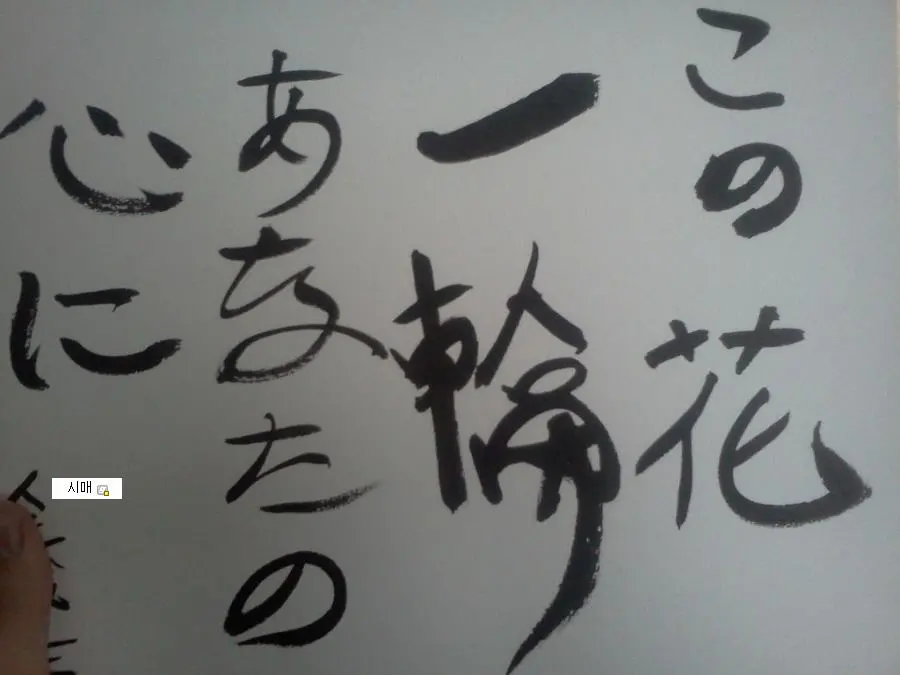 この花
一輪
あなたの
心に
시매